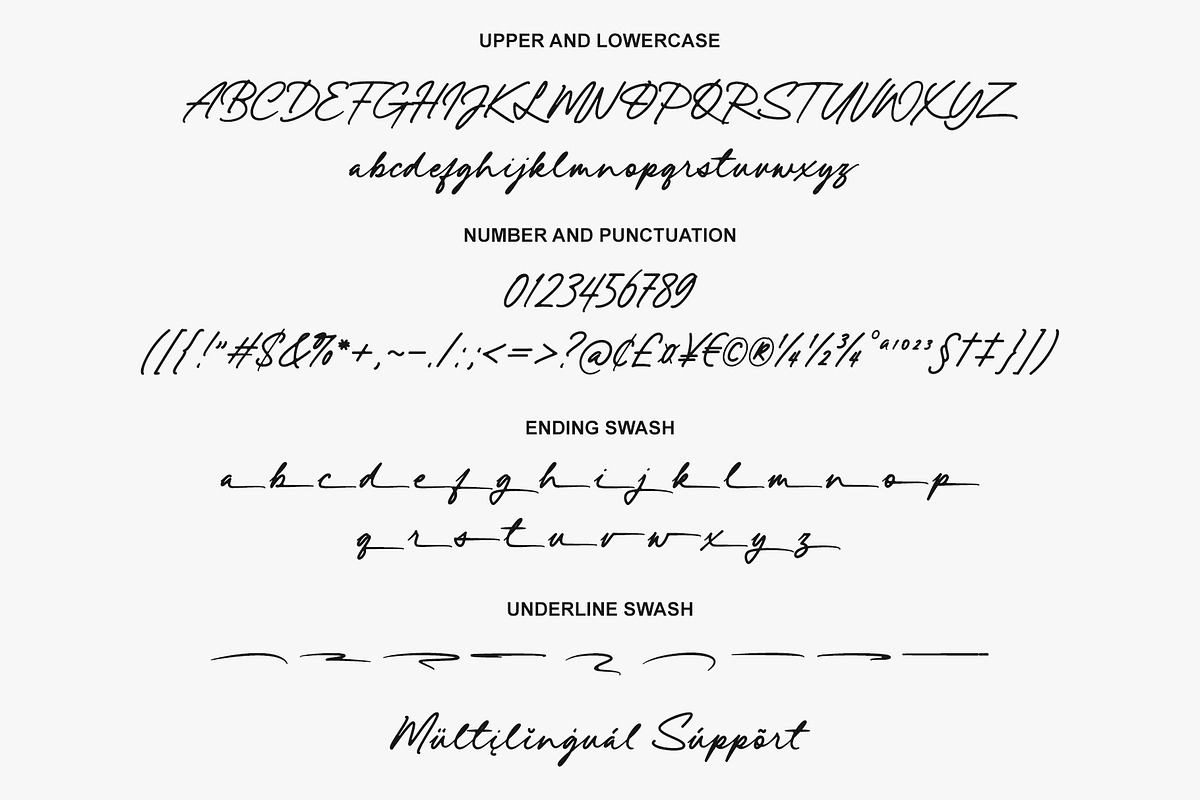 UPPER AND LOWERCASE
ABCDEFGHIJKLMNOPQRSTUVWXYZ
abcdefghijklmnopqrstuvwxyz
NUMBER AND PUNCTUATION
0123456789
([{!"#$&%*+,~-./:;<=>?@¢£¤¥€©®¼½¾°ª¹⁰²³§†‡}])
ENDING SWASH
a b c d e f g h i j k l m n o p
q r s t u v w x y z
UNDERLINE SWASH
Mültįlĭnġuál Súppõrt